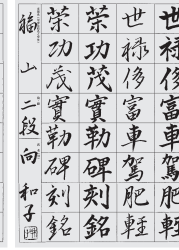 世禄侈富車駕肥軽
世禄侈富車駕肥軽
榮功茂實勒碑刻銘
榮功茂實勒碑刻銘
福山
二段 向和子